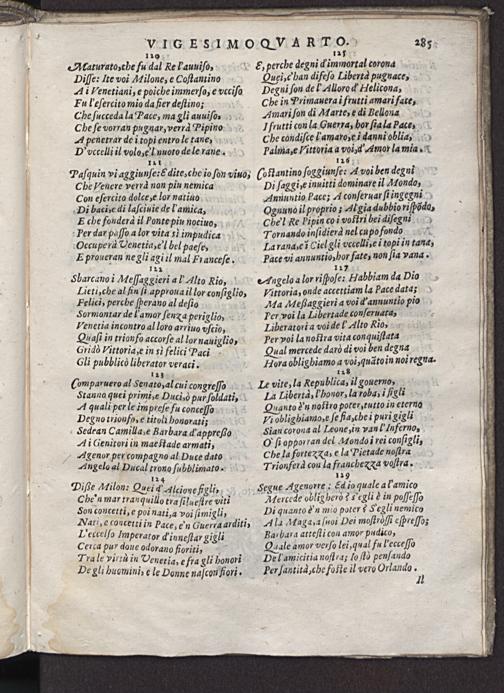 VIGESIMOQVARTO. 285
120
Maturato, che fu dal Re l'auuiso,
Disse: Ite voi Milone, e Costantino
A i Venetiani, e poiche immerso, e vcciso
Fu l'esercito mio da fier destino;
Che succeda la Pace, ma gli auuiso,
Che se vorran pugnar, verrà Pipino
A penetrar de i topi entro le tane,
D'vccelli il volo, e'l nuoto de le rane.
121
Pasquin vi aggiunse: E dite, che io son viuo,
Che Venere verrà non piu nemica
Con esercito dolce, e lor natiuo
Di baci, e di lasciuie de l'amica,
E che fonderà il Ponte piu nociuo,
Per dar passo a lor vita sì impudica
Occuperà Venetia, e'l bel paese,
E proueran ne gli agi il mal Francese.
122
Sbarcano i Messaggieri a l'Alto Rio,
Lieti, che al fin si approua il lor consiglio,
Felici, perche sperano al desio
Sormontar de l'amor senza periglio,
Venetia incontro al loro arriuo vscio,
Quasi in trionfo accorse al lor nauiglio,
Gridò Vittoria, e in sì felici Paci
Gli publicò liberator veraci.
123
Comparuero al Senato, al cui congresso
Stanno quei primi, e Duci, ò pur soldati,
A quali per le imprese fu concesso
Degno trionfo, e titoli honorati;
Sedean Camilla, e Barbara d'appresso
A i Genitori in maestade armati,
Agenor per compagno al Duce dato
Angelo al Ducal trono sublimato.
124
Disse Milon: Quei d'Alcione figli,
Che'n mar tranquillo tra siluestre viti
Son concetti, e poi nati, a voi simigli,
Nati, e concetti in Pace, e'n Guerra arditi,
L'eccelso Imperator d'innestar gigli
Cerca pur doue odorano fioriti,
Tra le virtù in Venetia, e fra gli honori
De gli huomini, e le Donne nascon fiori.
125
E, perche degni d'immortal corona
Quei, c'han difeso Libertà pugnace,
Degni son de l'Alloro d'Helicona,
Che in Primauera i frutti amari face,
Amari son di Marte, e di Bellona
I frutti con la Guerra, hor sia la Pace,
Che condisce l'amaro, e i danni oblia,
Palma, e Vittoria a voi, d'Amor la mia.
126
Costantino soggiunse: A voi ben degni
Di saggi, e inuitti dominare il Mondo,
Annuntio Pace; A conseruar si ingegni
Ognuno il proprio; Algia dubbio rispõdo,
Che'l Re Pipin co i vostri bei disegni
Tornando insidierà nel cupo fondo
La rana, e i Ciel gli vccelli, e i topi in tana,
Pace vi annuntio, hor fate, non sia vana.
127
Angelo a lor rispose: Habbiam da Dio
Vittoria, onde accettiam la Pace data;
Ma Messaggieri a voi d'annuntio pio
Per voi la Libertade conseruata,
Liberatori a voi de l'Alto Rio,
Per voi la nostra vita conquistata
Qual mercede darò di voi ben degna
Hora oblighiamo a voi, quãto in noi regna.
128
Le vite, la Republica, il gouerno,
La Libertà, l'honor, la roba, i figli
Quanto è'n nostro poter, tutto in eterno
Vi oblighiamo, e se fia, che i puri gigli
Sian corona al Leone, in van l'Inferno,
O' si opporran del Mondo i rei consigli,
Che la fortezza, e la Pietade nostra
Trionferà con la franchezza vostra.
129
Segue Agenorre: Ed io quale a l'amico
Mercede obligherò? S'egli è in possesso
Di quanto è'n mio poter? S'egli nemico
A la Maga, a suoi Dei mostrossi espresso;
Barbara attesti con amor pudico,
Quale amor verso lei, qual fu l'eccesso
De l'amicitia nostra; Io stò pensando
Per santità, che foste il vero Orlando.
Il